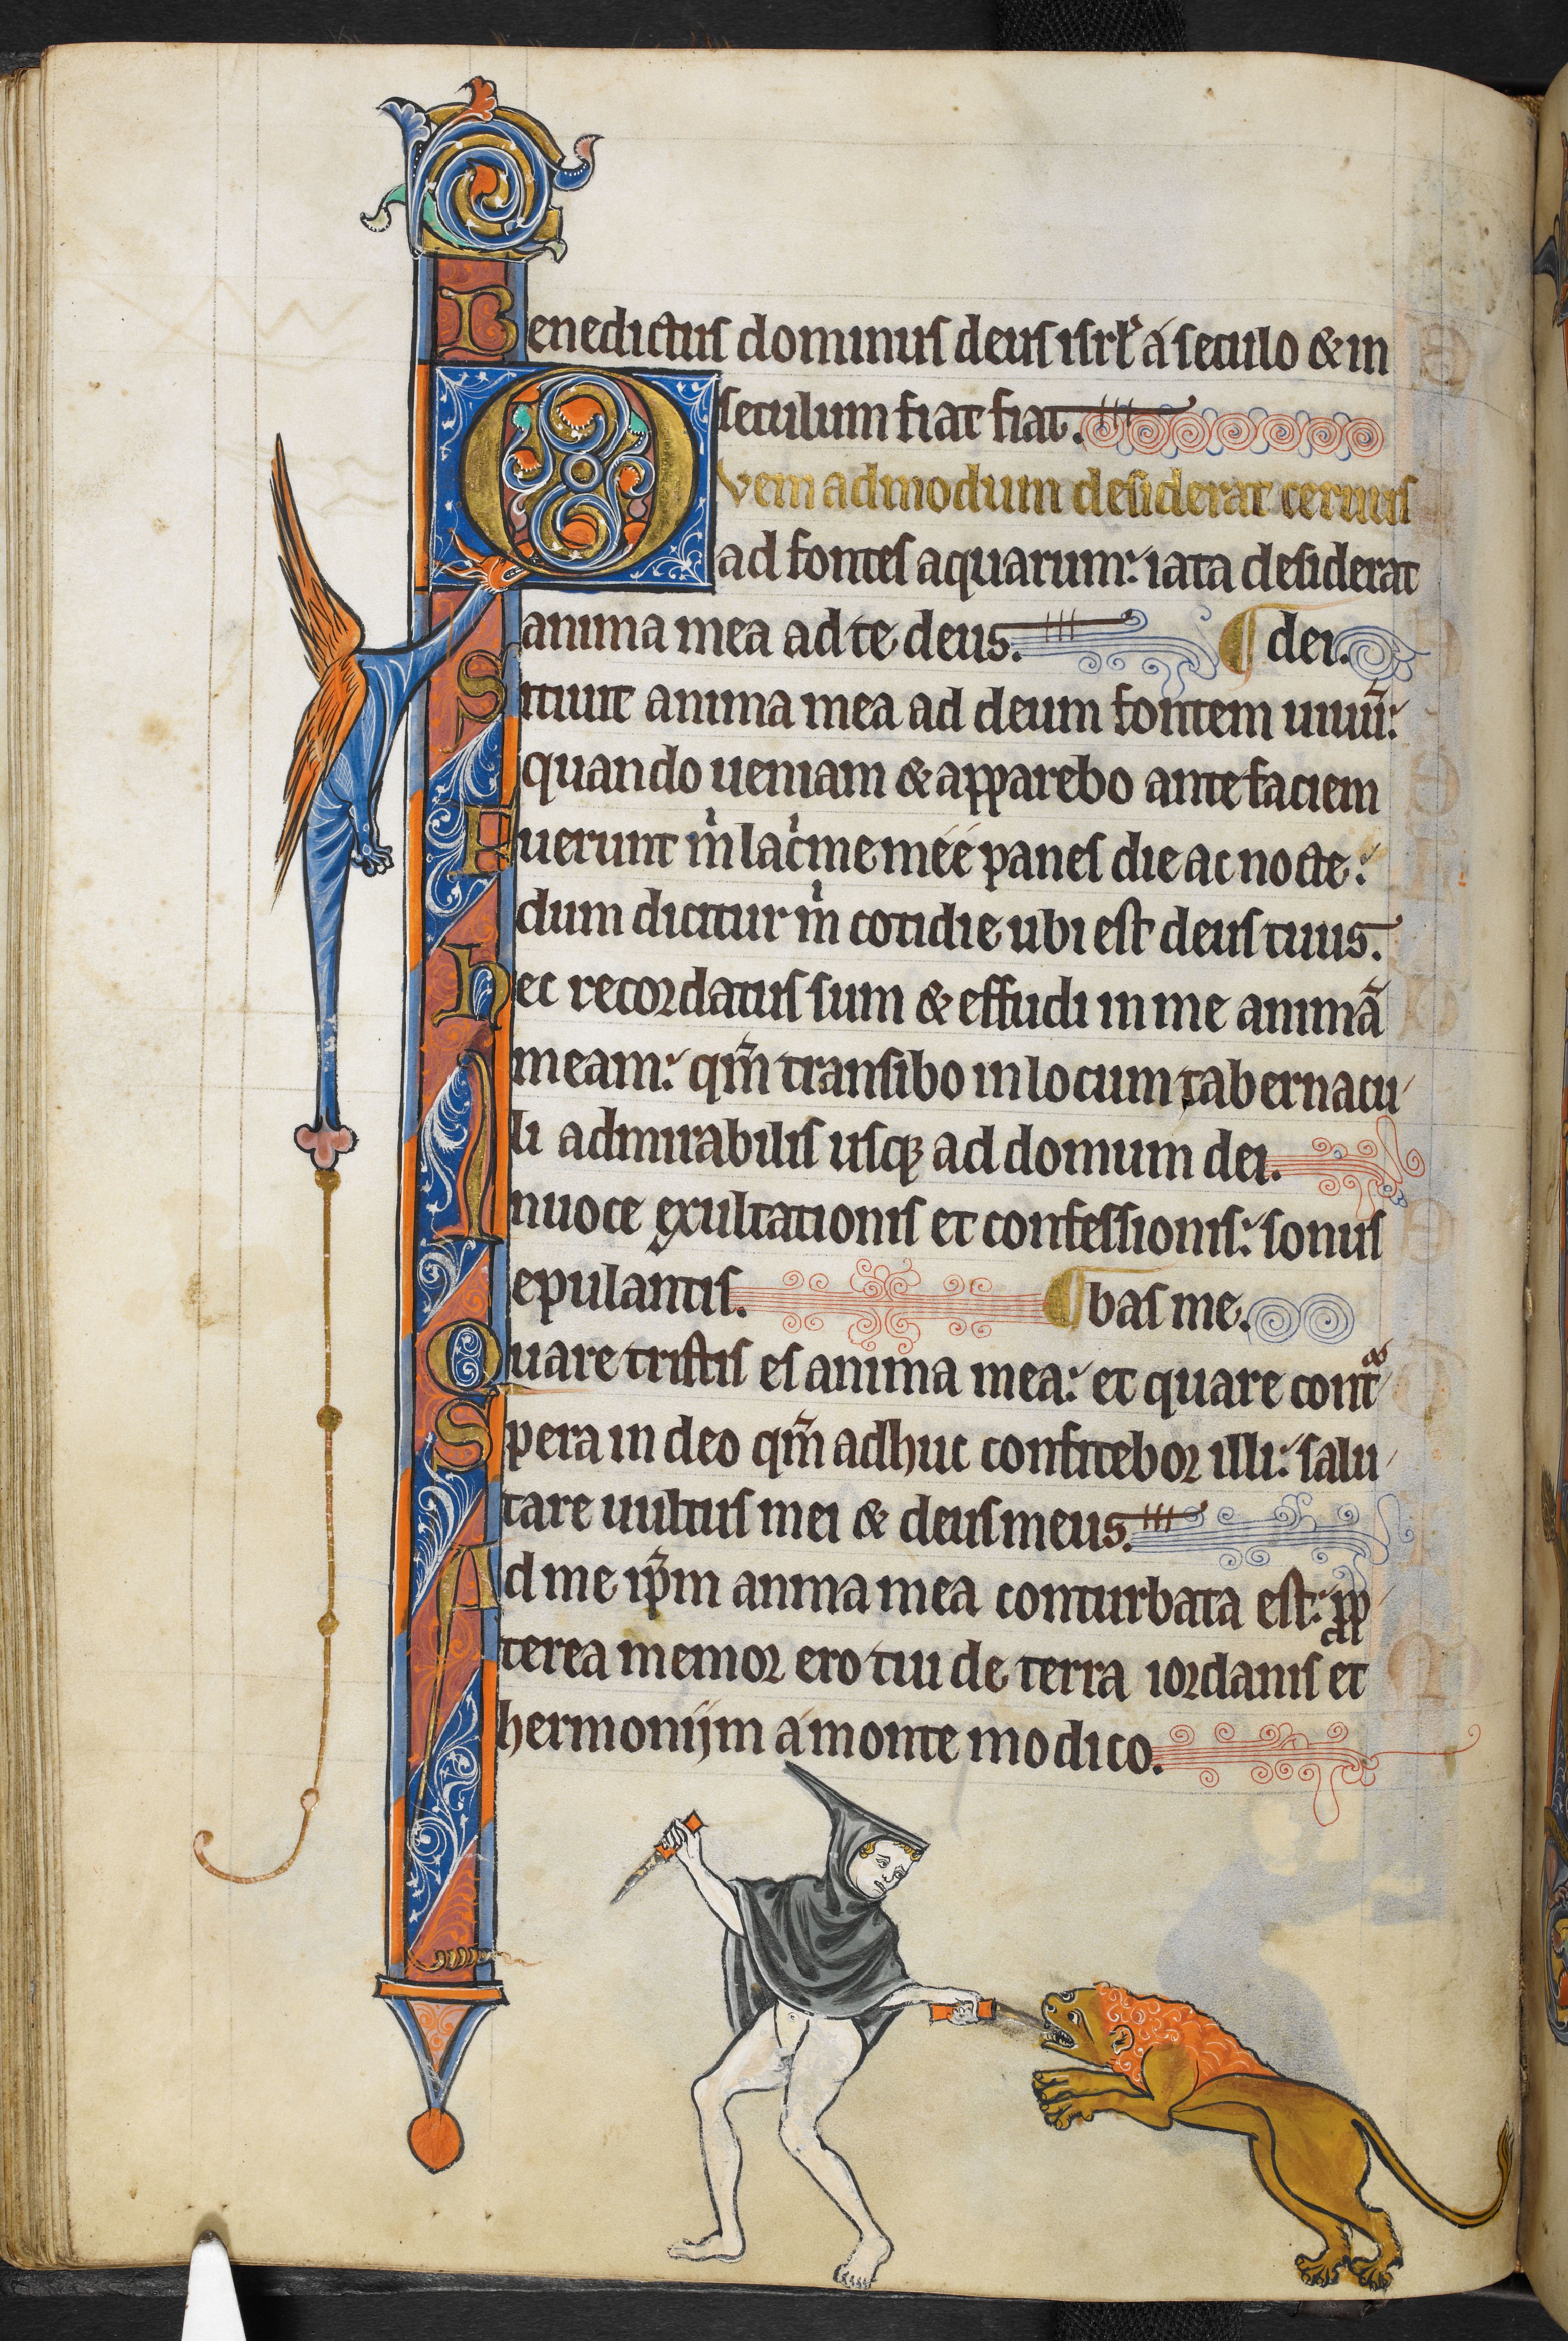 Benedictus dominus deus isrl' a seculo & in
seculum fiat fiat.
Quemadmodum desiderat ceruus
ad fontes aquarum: ita ta desiderat
anima mea ad te deus. ¶ dei.
Sitiuit anima mea ad deum fontem uiuũ:
quando ueniam & apparebo ante faciem
Fuerunt m̍ lac̍me meé panes die ac nocte:
dum dicitur m̍ cotidie ubi est deus tuus.
Hec recordatus sum & effudi in me animã
meam: qm̃ transibo in locum tabernacu
li admirabilis usqꝫ ad domum dei.
Inuoce exultationis et confessionis: sonus
epulantis. ¶ bas me.
Quare tristis es anima mea: et quare contᷓ
Spera in deo qm̃ adhuc confitebor illi: salu
tare uultus mei & deus meus.
Ad me ip̃m anima mea conturbata est: ꝓp
terea memor ero tui de terra iordanis et
hermoniim a monte modico.